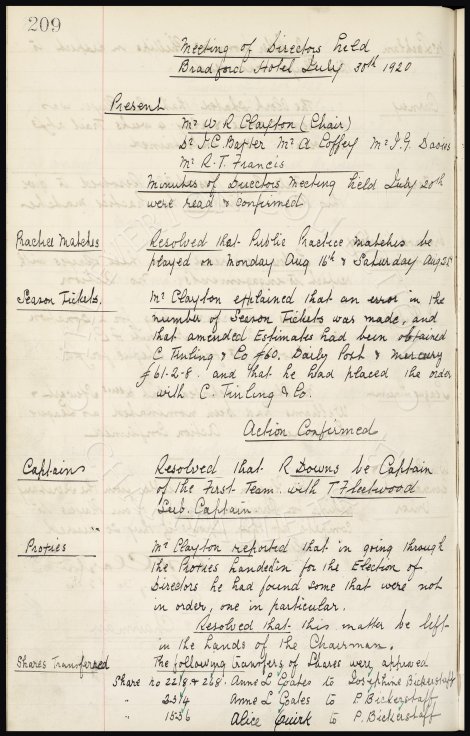 209
Meeting of Directors held
Bradford Hotel July 30th 1920
Present
Mr W. R. Clayton (Chair)
Dr J. C. Baxter Mr A Coffey Mr J. G. Davies
Mr R. T. Francis
Minutes of Directors Meeting held July 20th
were read & confirmed
Practice Matches
Resolved that Public Practice matches be
played on Monday Aug 16th & Saturday Aug
Season Tickets.
Mr Clayton explained that an error in the
number of Season Tickets was made, and
that amended Estimates had been obtained
C. Tinling & Co £60. Daily Post & Mercury
£61-2-8. and that he had placed the order
with C. Tinling & Co.
Action Confirmed
Captain
Resolved that R Downs be Captain
of the First Team with T Fleetwood
Sub. Captain
Proxies
Mr Clayton reported that in going through
the Proxies handed in for the Election of
Directors he had found some that were not
in order, one in particular.
Resolved that this matter be left
in the hands of the Chairman.
Shares Transferred
The following transfers of Shares were approved
Share no 2218 & 268. Anne L Coates to Josephine Bickerstaff
" 2314 Anne L Coates to P. Bickerstaff
" 1536 Alice Quirk to P. Bickerstaff